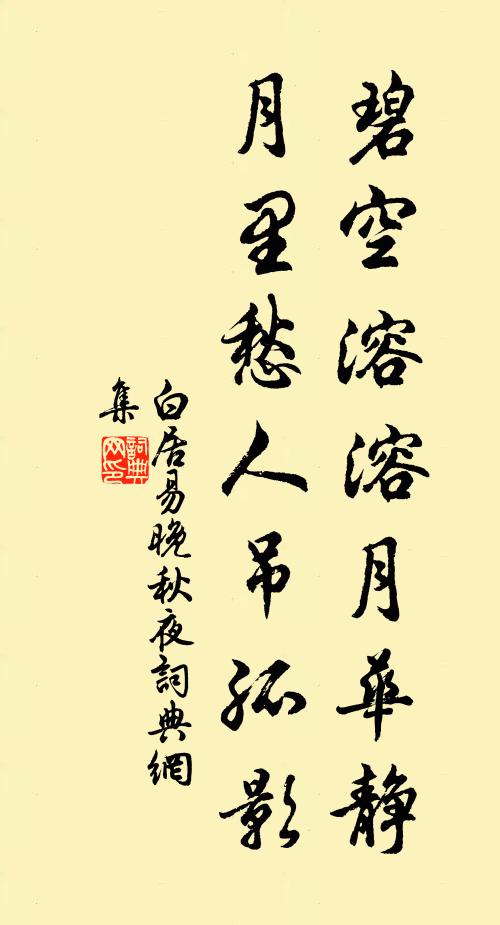 碧空溶溶月華静
月里愁人吊孤影
白居易晚秋夜詞典網
集
詞典
网印